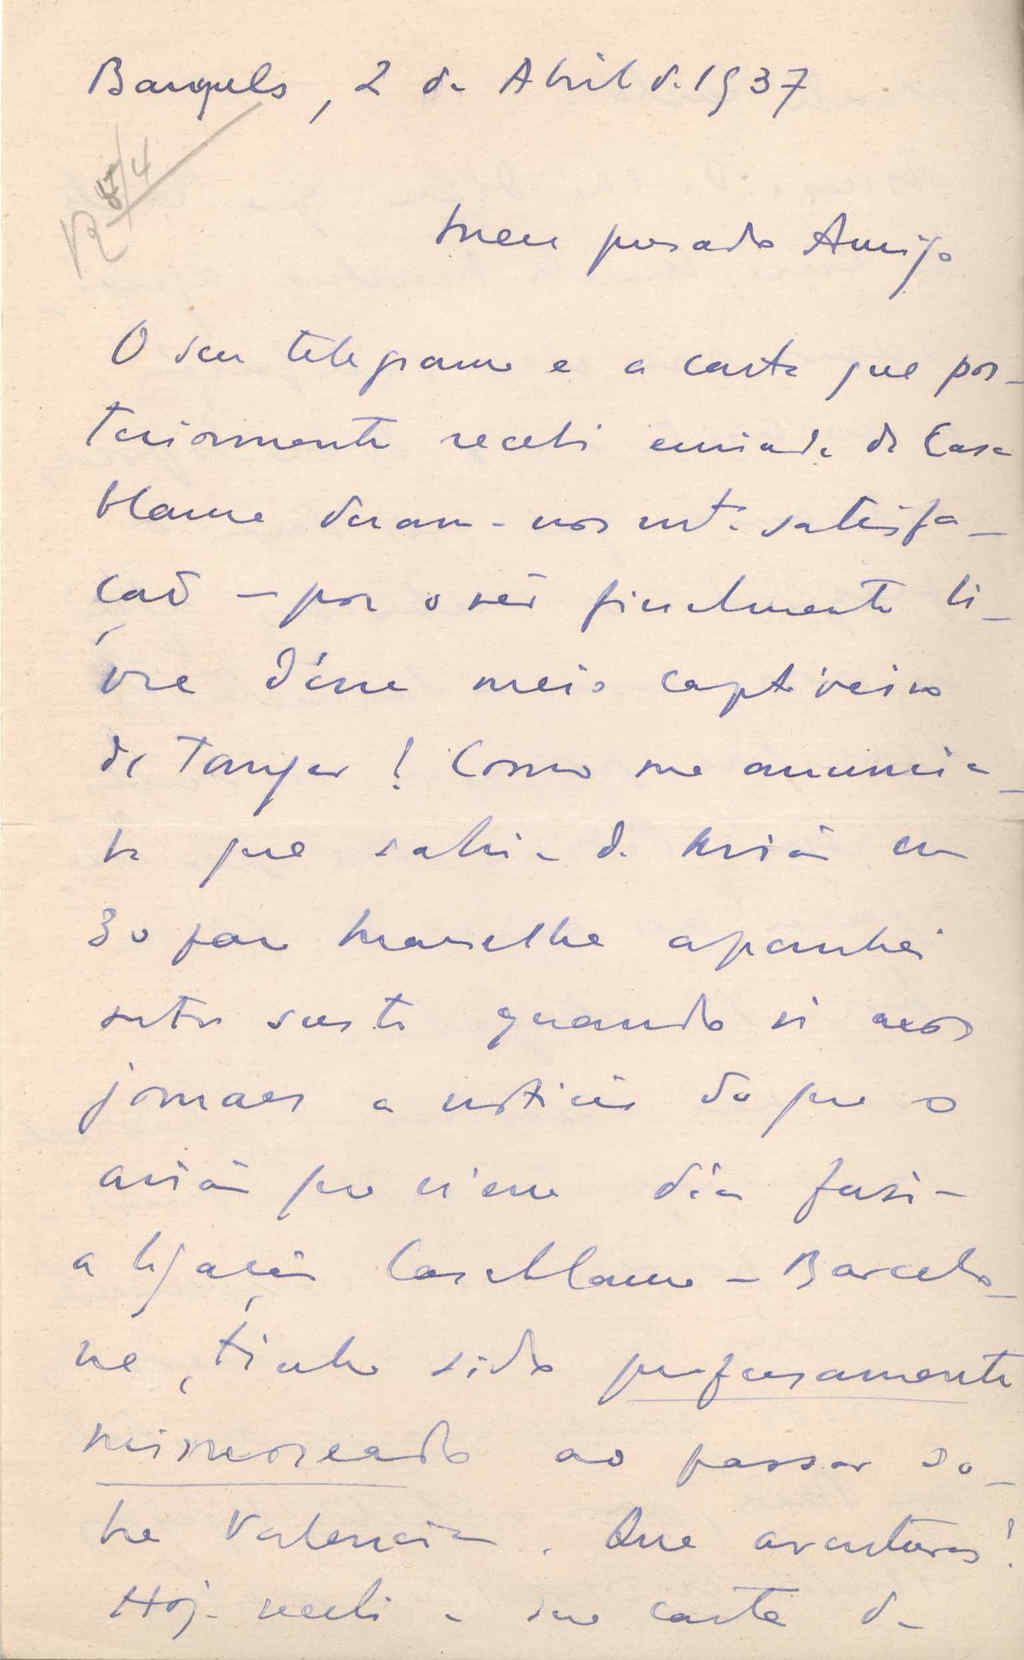 Banyuls, 2 de Abril de 1937
R 8/4
Meu presado Amigo
O seu telegrama e a carta que pos-
teriormente recebi enviada de Casa
blanca deram-nos mta satisfa-
ção – por o vêr finalmente li-
vre d'esse meio captiveiro
de Tanger! Como me anuncia-
va que sahia de Avião em
30 para Marselha apanhei
susto quando vi nos
jornaes a noticia de que o
avião que n'esse dia fazia
a ligação Casablanca – Barcelo-
na, tinha sido profusamente
mimoseado ao passar so-
bre Valencia. Que aventuras!
Hoje recebi a sua carta de